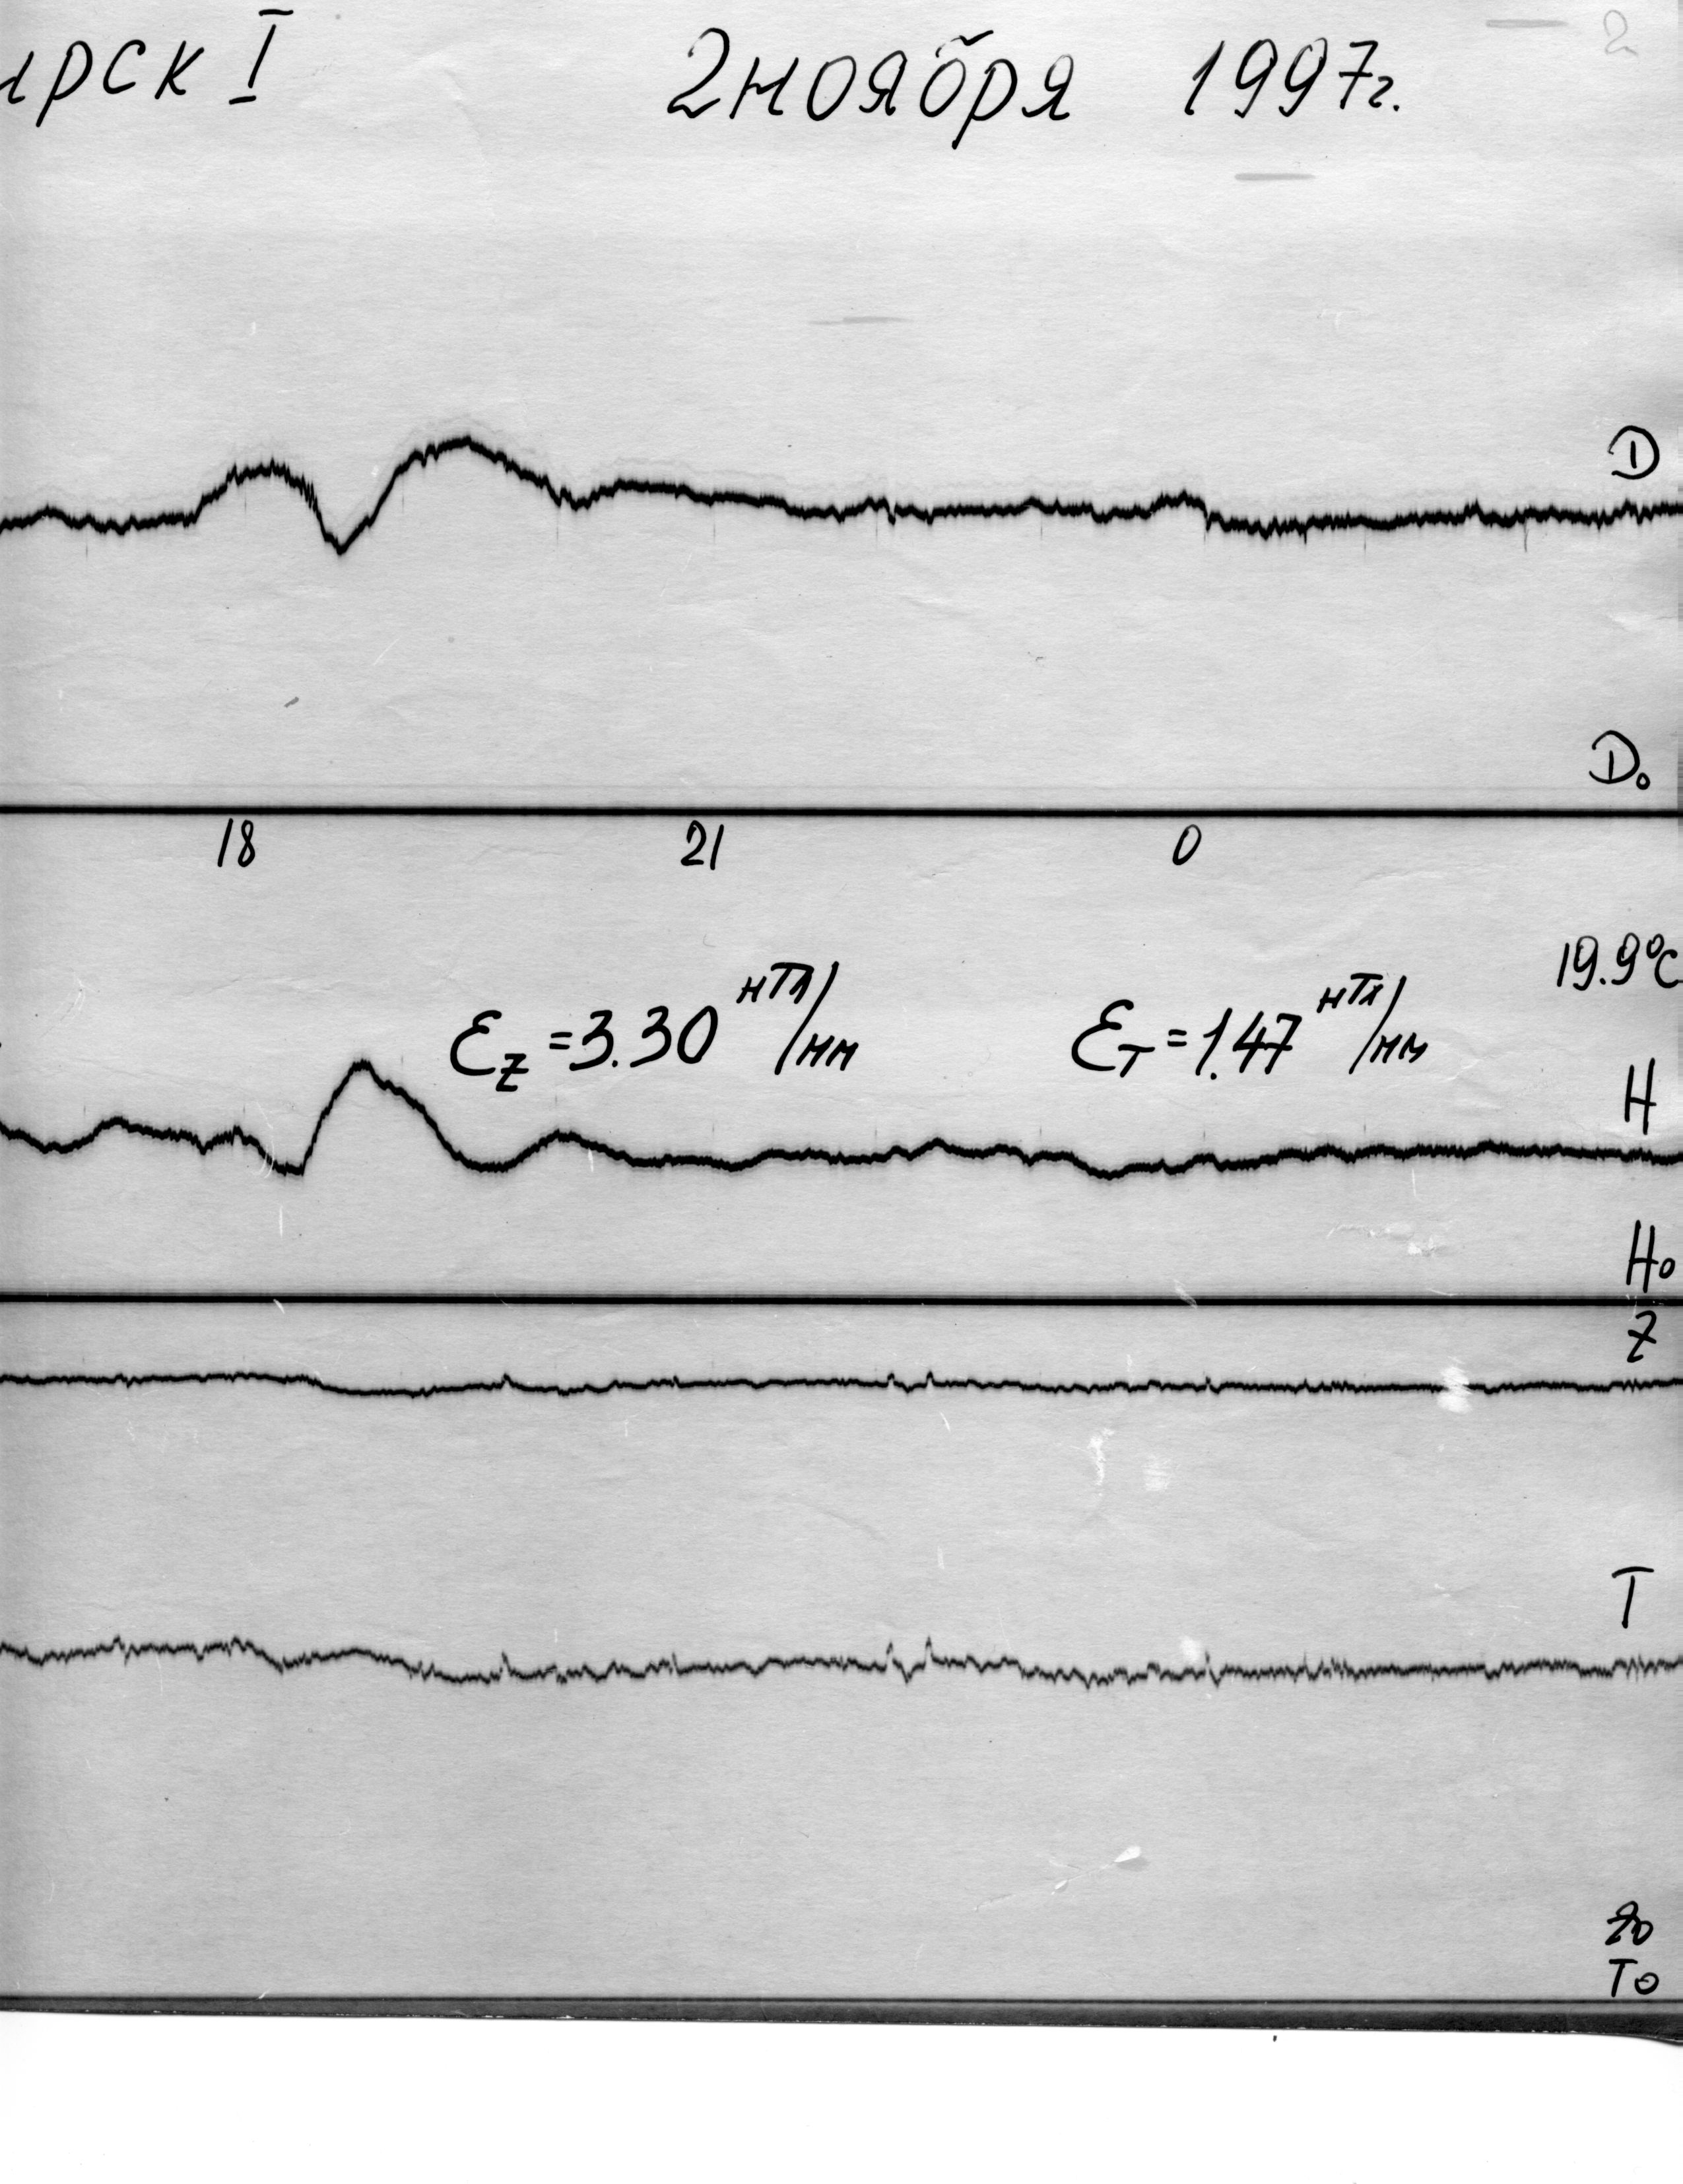 ирск I 2 ноября 1997г. 2
D
D₀
18 21 0
19.9°C
Ɛz = 3.30 нТл/мм Ɛт = 1.47 нТл/мм
H
H₀
Z
T
Z₀
T₀